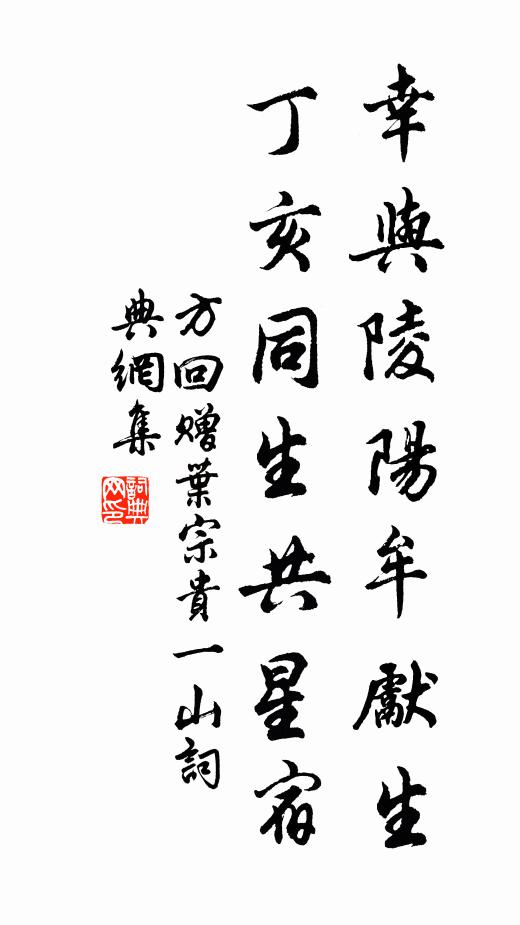 幸與陵陽牟獻生
丁亥同生共星宿
方回贈葉宗貴一山詞
典網集
詞典網印